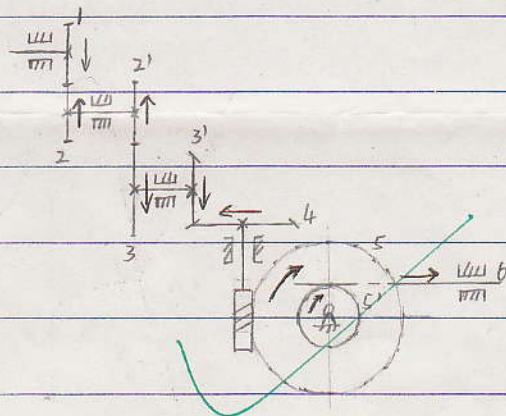 1
2'
2
3'
3
4
5
6
5'